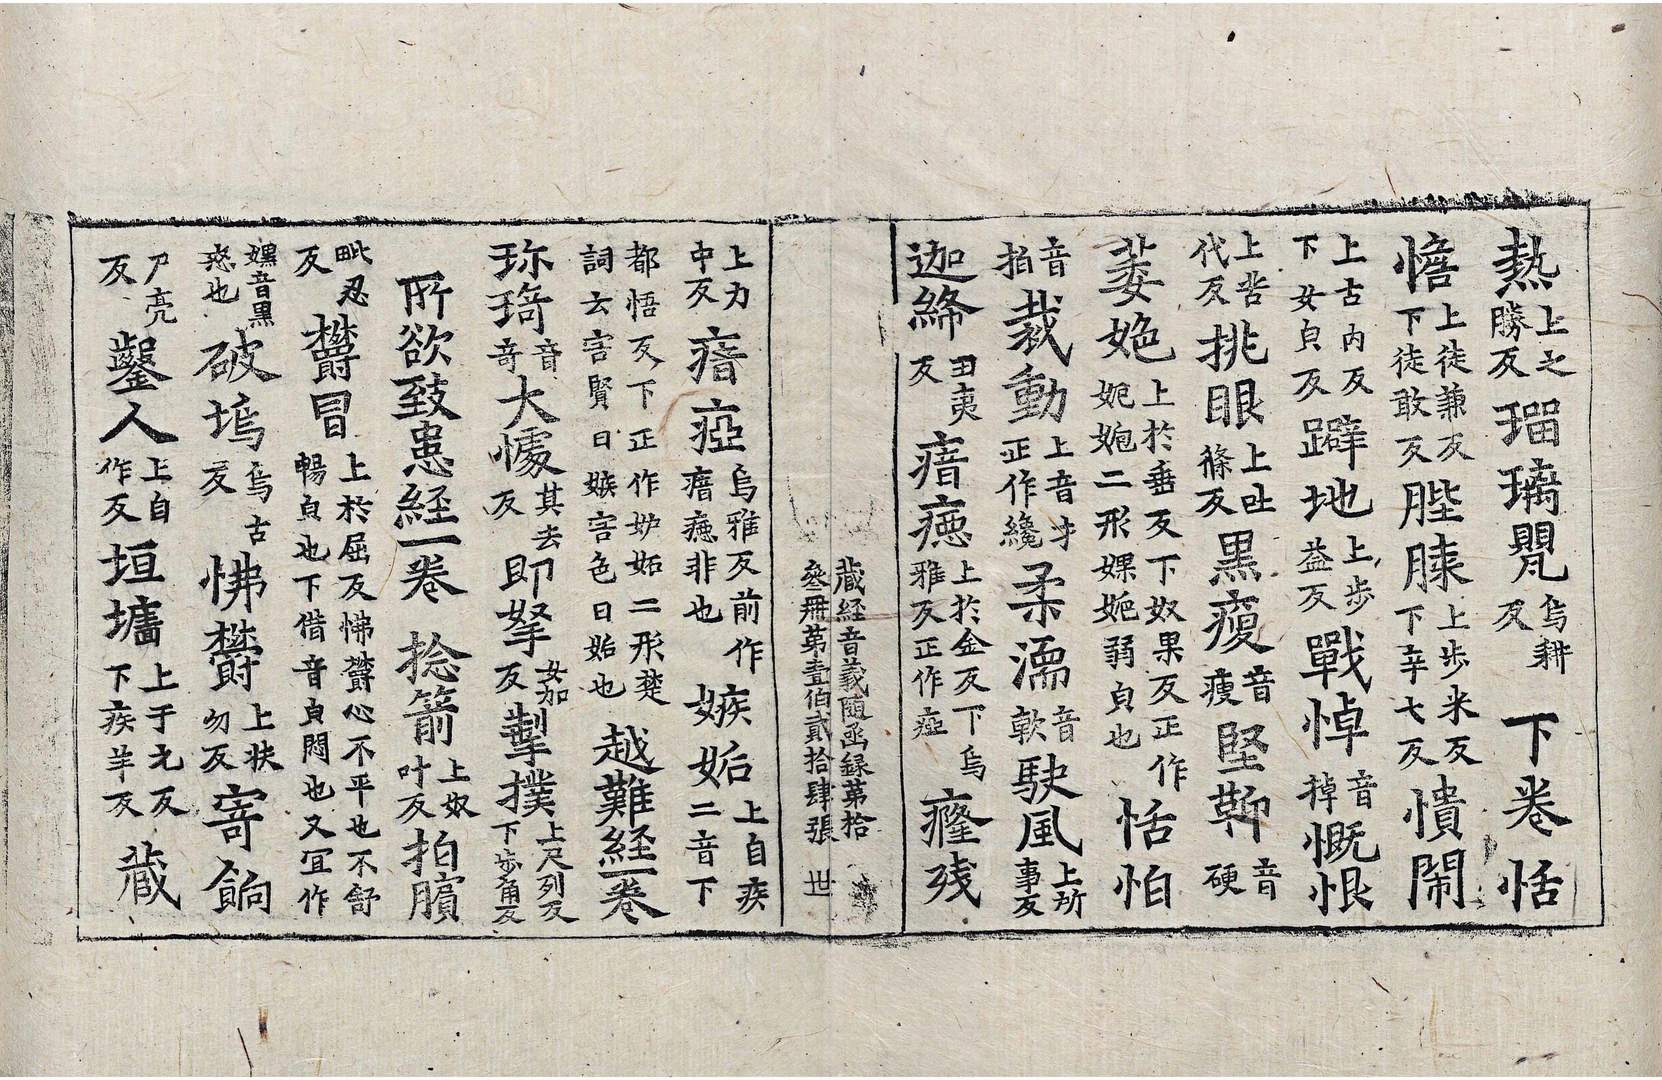 熱上之勝反瑠璃甖烏耕反 下卷恬
憺上徒兼反下徒敢反䏶膝上步米反下辛七反憒閙
上古內反下女皃反躃地上步益反戰悼音掉慨恨
上苦代反挑眼上吐條反黒瘦音瘦堅鞕音硬
萎㛂上於垂反下奴果反正作婗婗二形婐婗弱皃也恬怕
音拍裁動上音才正作纔柔濡音軟駛風上所事反
迦絺丑夷反瘖瘂上於金反下烏雅反正作瘂癃残
藏經音義隨函録第拾
叄冊第壹伯貳拾肆張 世
上力中反瘖瘂烏雅反前作瘖㾏非也嫉妬上自疾二音下
都悟反下正作妒妬二形楚詞云害賢曰嫉害色曰妬也 越難経一卷
珎琦音奇大懅其去反即拏女加反掣撲上尺列反下步角反
所欲致患経一卷 捻箭上奴叶反拍髕
毗忍反欝冒上於屈反怫欝心不平也不舒暢皃也下借音皃悶也又冝作
嫼音黒惑也破塢烏古反怫欝上扶勿反寄餉
尸亮反鑿人上自作反垣墻上于元反下疾羊反 藏